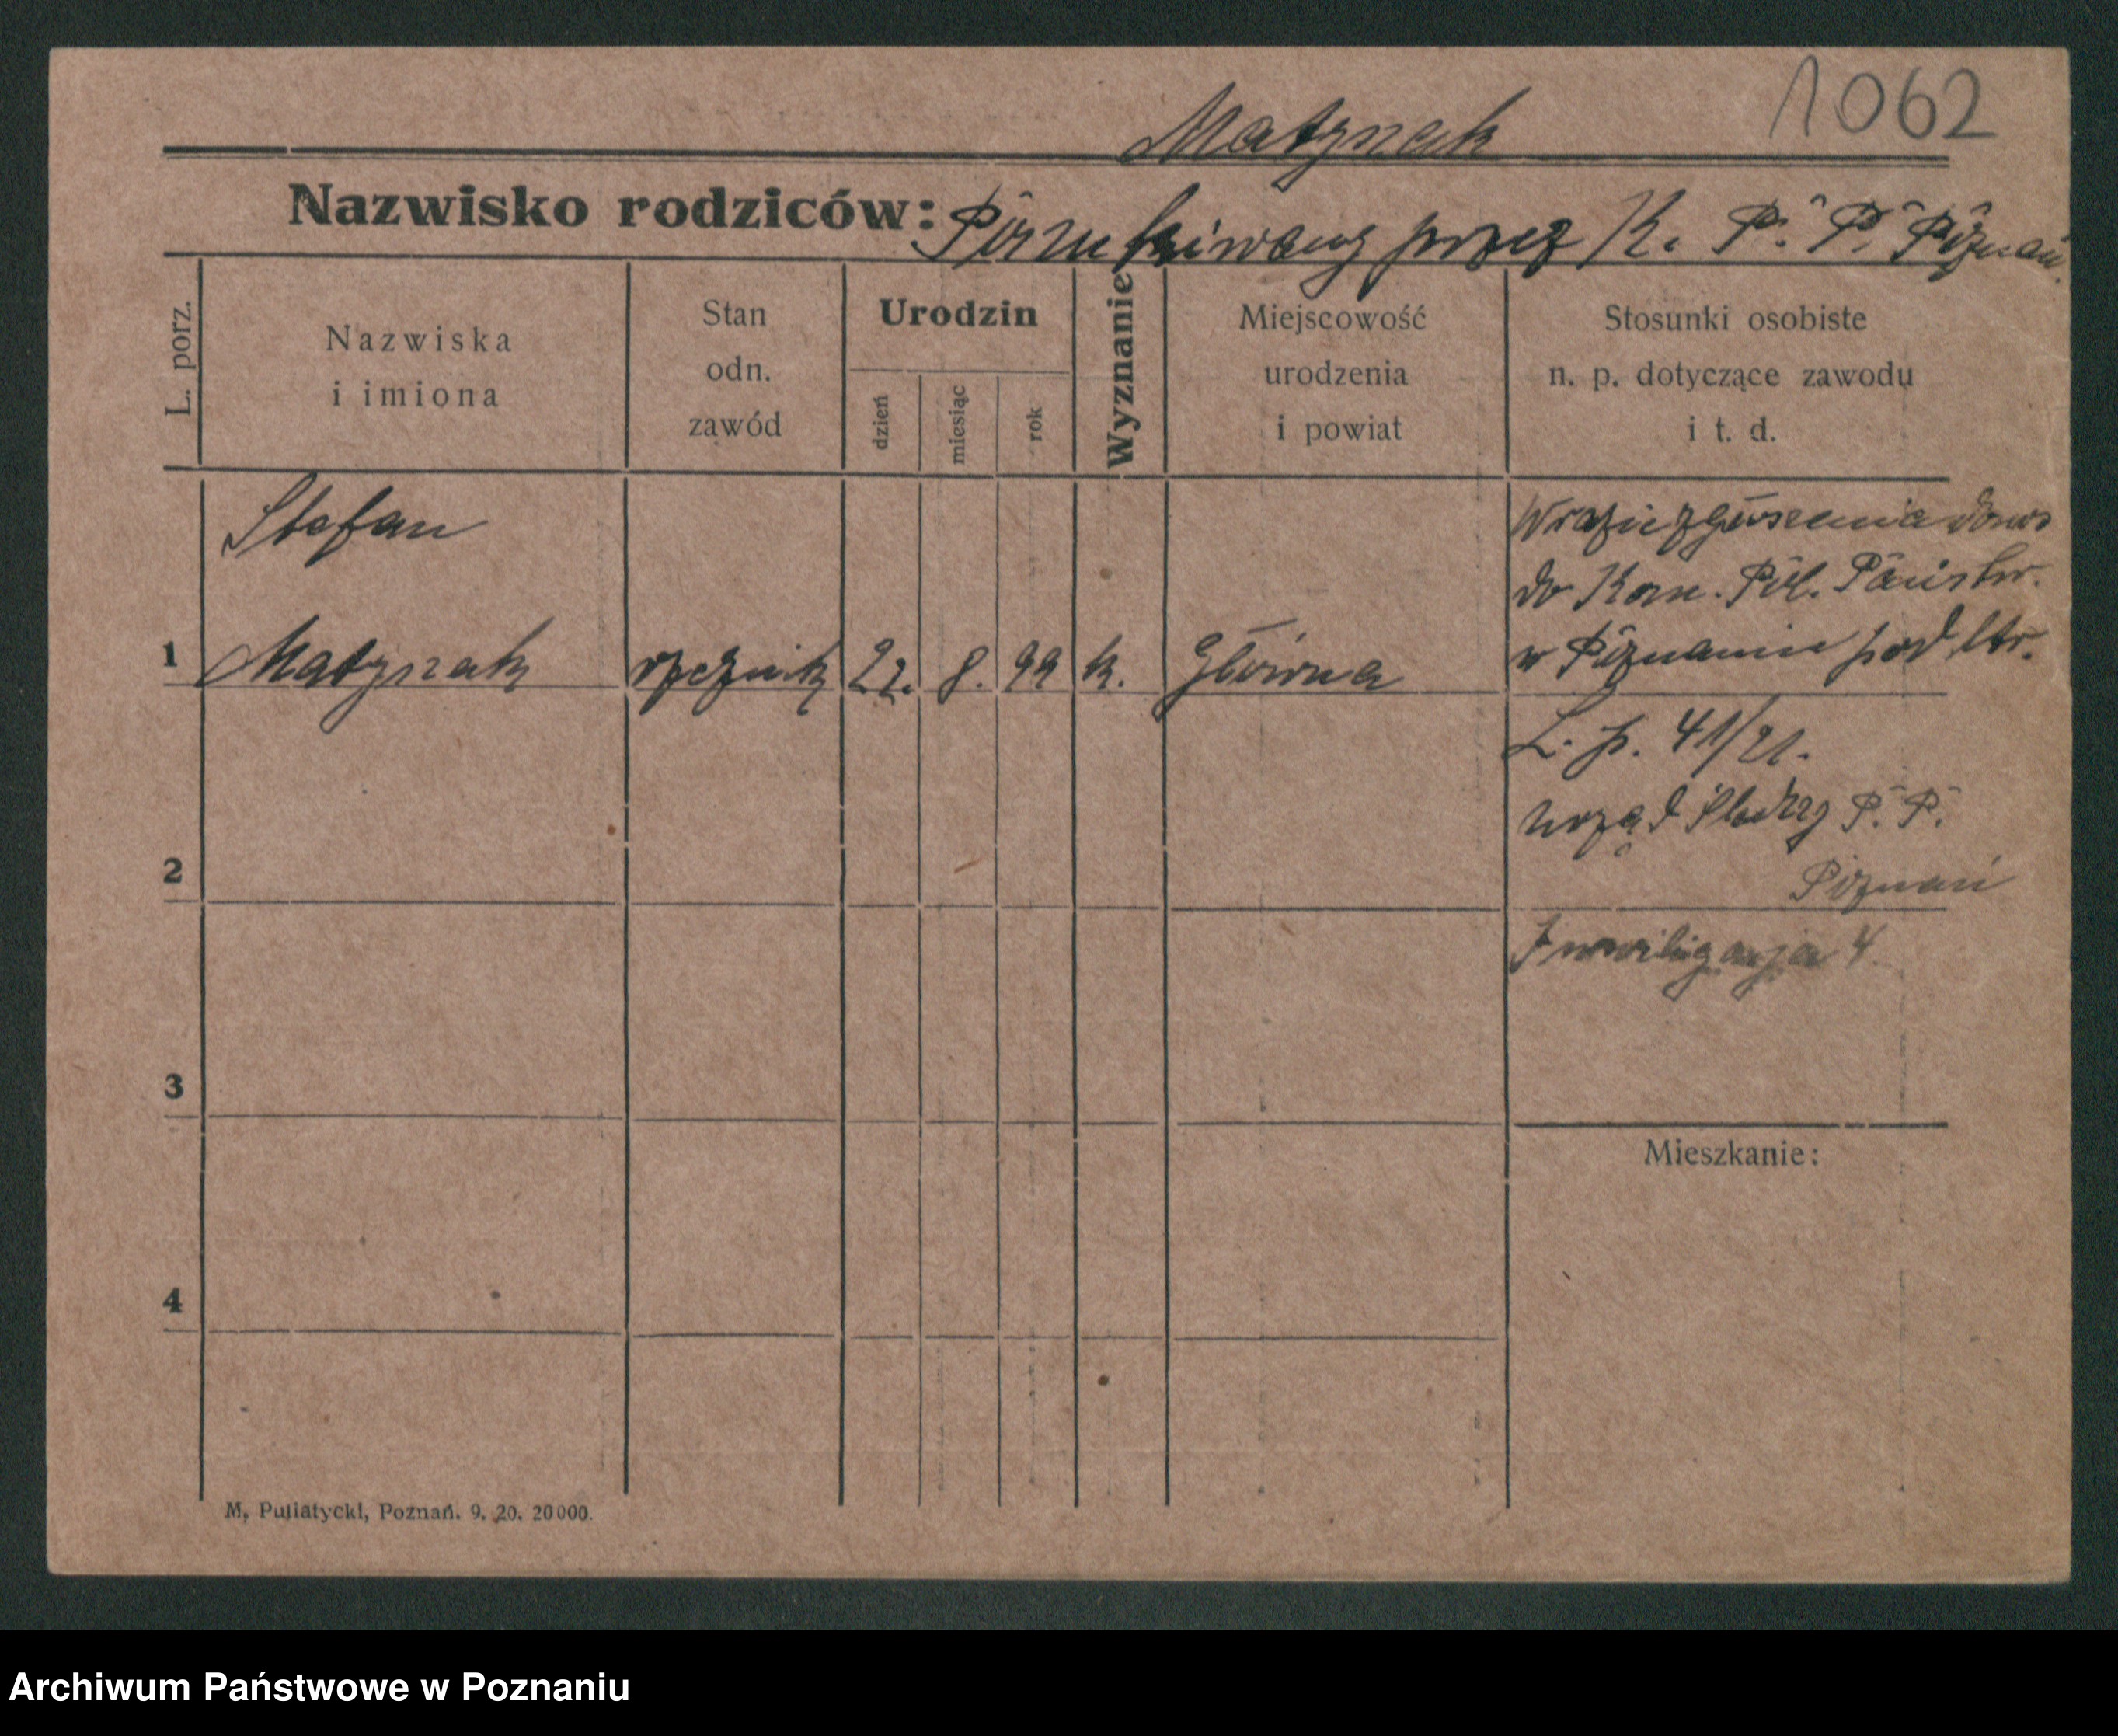 1062
Matyszak
Nazwisko rodziców: Poszukiwany przez K. P. P. Poznań.
L. porz.
Nazwiska
i imiona
Stan
odn.
zawód
Urodzin
dzień
miesiąc
rok
Wyznanie
Miejscowość
urodzenia
i powiat
Stosunki osobiste
n. p. dotyczące zawodu
i t. d.
Stefan
1 Matyszak rzeźnik 22. 8. 99 k. Główna
W razie zgłoszenia donos
do Kom. Pol. Państw.
w Poznaniu pod ltr.
L. p. 41/21.
Urząd Śledczy P. P.
Poznań
Inwiligacja 4
2
3
4
Mieszkanie:
M. Putiatycki, Poznań. 9. 20. 20000.
Archiwum Państwowe w Poznaniu